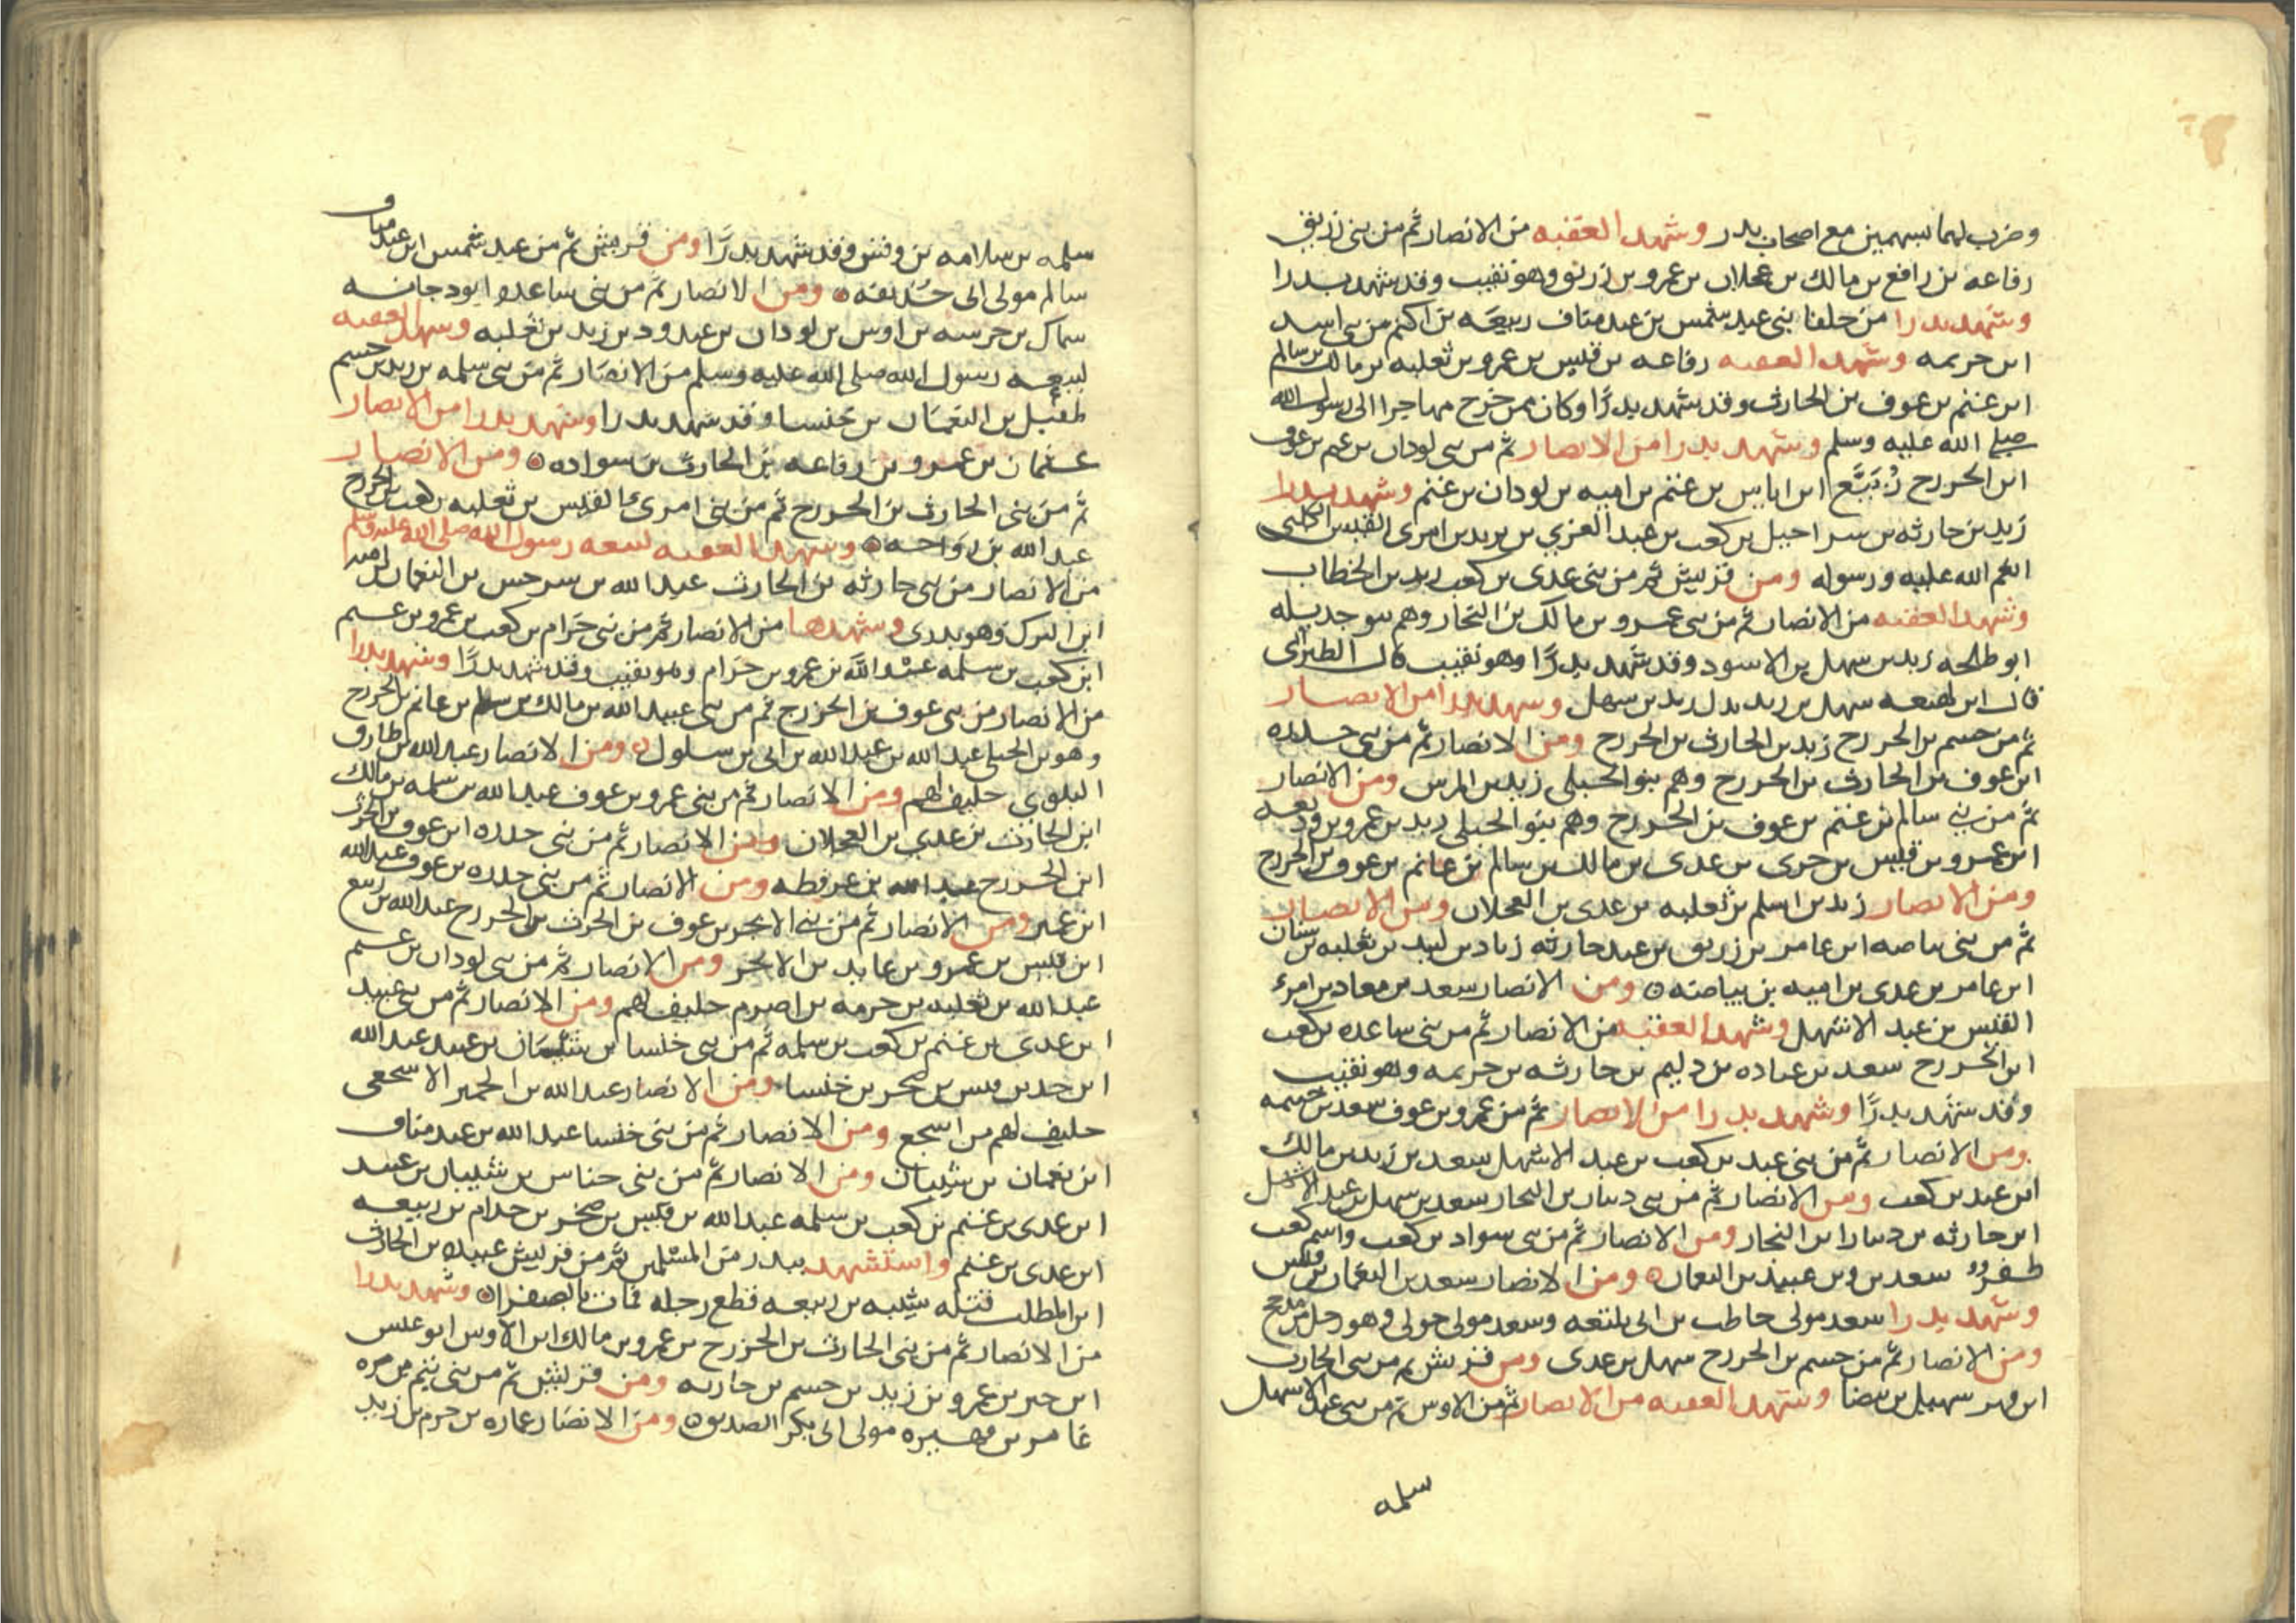 وضرب لهما بسهمين مع اصحاب بدر وشهد العقبه من الانصار ثم من بني زريق
رفاعه بن رافع بن مالك بن عجلان بن عمرو بن زريق وهو نقيب وقد شهد بدرا
وشهد بدرا من حلفا بني عبد شمس بن عبد مناف ربيعه بن اكثم من بني اسد
ابن خزيمه وشهد العقبه رفاعه بن قيس بن عمرو بن ثعلبه بن مالك بن سالم
ابن غنم بن عوف بن الحارث وقد شهد بدرًا وكان ممن خرج مهاجرا الى رسول الله
صلى الله عليه وسلم وشهد بدرا من الانصار ثم من بني لوذان بن غنم بن عوف
ابن الخزرج ربيع ابن اياس بن غنم بن اميه بن لوذان بن غنم وشهد بدرا
زيد بن حارثه بن سراحيل بن كعب بن عبد العزي بن يزيد بن امرى القيس الكلبي
انعم الله عليه ورسوله ومن قريش ثم من بني عدى بن كعب زيد بن الخطاب
وشهد العقبه من الانصار ثم من بني عمرو بن مالك بن النجار وهم بنو حديله
ابو طلحه زيد بن سهل بن الاسود وقد شهد بدرًا وهو نقيب قال الطبرانى
قال ابن لهيعه سهل بن زيد بدل زيد بن سهل وشهد بدرا من الانصار
ثم من جسم بن الخزرج زيد بن الحارث بن الخزرج ومن الانصار ثم من بني جداره
ابن عوف بن الحارث بن الخزرج وهم بنو الحبلى زيد بن المرس ومن الانصار
ثم من بني سالم بن غنم بن عوف بن الخزرج وهم بنو الحبلى زيد بن عمرو بن وديعه
ابن عمرو بن قيس بن جزى بن عدى بن مالك بن سالم بن غانم بن عوف بن الخزرج
ومن الانصار زيد بن اسلم بن ثعلبه بن عدى بن العجلان ومن الانصار
ثم من بني بياضه ابن عامر بن زريق بن عبد حارثه زياد بن لبيد بن ثعلبه بن سنان
ابن عامر بن عدى بن اميه بن بياضه ومن الانصار سعد بن معاد بن امرء
القيس بن عبد الاشهل وشهد العقبه من الانصار ثم من بني ساعده بن كعب
ابن الخزرج سعد بن عباده بن دليم بن حارثه بن خزيمه وهو نقيب
وقد شهد بدرًا وشهد بدرا من الانصار ثم من عمرو بن عوف سعد بن خيثمه
ومن الانصار ثم من بني عبد بن كعب بن عبد الاشهل سعد بن زيد بن مالك
ابن عبد بن كعب ومن الانصار ثم من بني دينار بن النجار سعد بن سهل بن عبد الاشهل
ابن حارثه بن دينار ابن النجار ومن الانصار ثم من بني سواد بن كعب واسم كعب
ظفر سعد بن عبيد بن النعمان ومن الانصار سعد بن النعمان بن قيس
وشهد بدرا سعد مولى حاطب بن ابي بلتعه وسعد مولى خولى وهو رجل من مذحج
ومن الانصار ثم من جسم بن الخزرج سهل بن عدى ومن قريش ثم من بني الحارث
ابن فهر سهيل بن بيضا وشهد العقبه من الانصار ثم من الاوس ثم من بني عبد الاشهل
سلمه
سلمه بن سلامه بن وقش وقد شهد بدرًا ومن قريش ثم من عبد شمس ابن عبد مناف
سالم مولى ابي حذيفه ومن الانصار ثم من بني ساعده ابو دجانه
سماك بن خرشه بن اوس بن لوذان بن عبدود بن زيد بن ثعلبه وشهد العقبه
لبيعه رسول الله صلى الله عليه وسلم من الانصار ثم من بني سلمه بن زيد بن جسم
طفيل بن النعمان بن خنسا وقد شهد بدرا وشهد بدرا من الانصار
عثمان بن عمرو بن رفاعه بن الحارث بن سواده ومن الانصار
ثم من بني الحارث بن الخزرج ثم من بني امرىء القيس بن ثعلبه بن كعب بن الخزرج
عبد الله بن رواحه وشهد العقبه لبيعه رسول الله صلى الله عليه وسلم
من الانصار من بني حارثه بن الحارث عبد الله بن سرجس بن النعمان بن اميه
ابن البرك وهو بدرى وشهدها من الانصار ثم من بني حرام بن كعب بن عمرو بن غنم
ابن كعب بن سلمه عبد الله بن عمرو بن حرام وهو نقيب وقد شهد بدرًا وشهد بدرا
من الانصار من بني عوف بن الخزرج ثم من بني عبيد الله بن مالك بن سالم بن غانم بن الخزرج
وهو بن الحبلى عبد الله بن عبد الله بن ابي بن سلول ومن الانصار عبد الله بن طارق
البلوي حليف لهم ومن الانصار ثم من بني عمرو بن عوف عبد الله بن سلمه بن مالك
ابن الحارث بن عدي بن العجلان ومن الانصار ثم من بني جداره ابن عوف بن الخزرج
ابن الخزرج عبد الله بن عرفطه ومن الانصار ثم من بني جداره بن عوف عبد الله
ابن عمير ومن الانصار ثم من بني الابجر بن عوف بن الحرث بن الخزرج عبد الله بن ربيع
ابن قيس بن عمرو بن عابد بن الابجر ومن الانصار ثم من بني لوذان بن غنم
عبد الله بن ثعلبه بن خزمه بن اصرم حليف لهم ومن الانصار ثم من بني عبيد
ابن عدى بن غنم بن كعب بن سلمه ثم من بني خنسا بن سنان بن عبيد عبد الله
ابن جد بن قيس بن صخر بن خنسا ومن الانصار عبد الله بن الحمير الاشجعى
حليف لهم من اشجع ومن الانصار ثم من بني خنسا عبد الله بن عبد مناف
ابن نعمان بن شيبان ومن الانصار ثم من بني خناس بن شيبان بن عبيد
ابن عدى بن غنم بن كعب بن سلمه عبد الله بن قيس بن صخر بن حرام بن ربيعه
ابن عدى بن غنم واستشهد ببدر من المسلمين ثم من قريش عبيده بن الحارث
ابن المطلب قتله شيبه بن ربيعه قطع رجله فمات بالصفرا وشهد بدرا
من الانصار ثم من بني الحارث بن الخزرج بن عمرو بن مالك ابن الاوس ابو عبس
ابن جبر بن عمرو بن زيد بن جسم بن حارثه ومن قريش ثم من بني تيم بن مره
عامر بن فهيره مولى ابى بكر الصديق ومن الانصار عماره بن حزم بن زيد